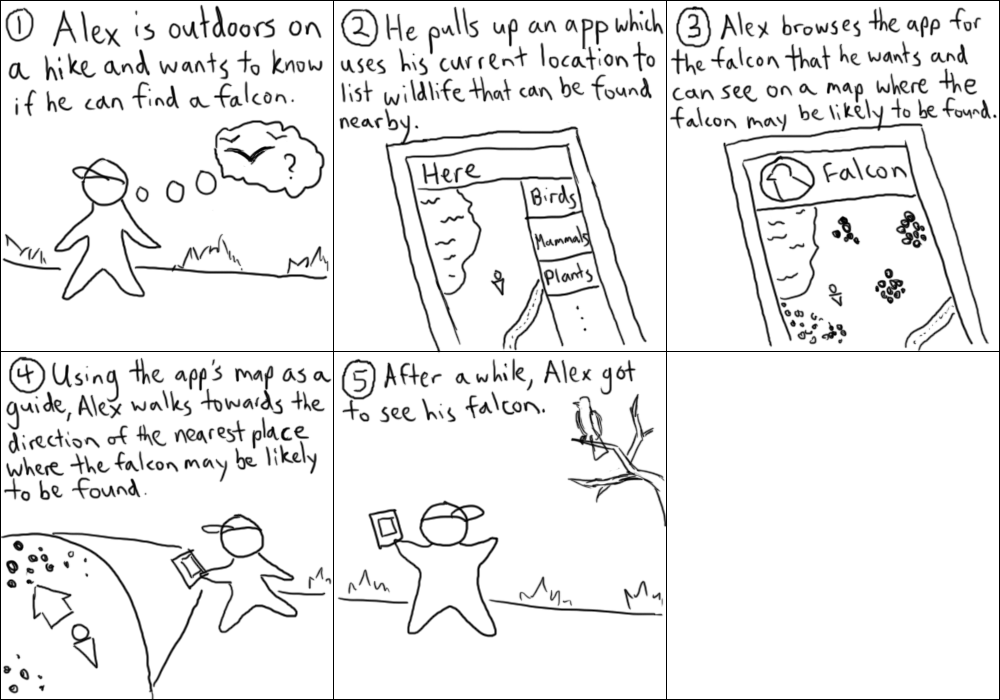 ① Alex is outdoors on
a hike and wants to know
if he can find a falcon.
?
② He pulls up an app which
uses his current location to
list wildlife that can be found
nearby.
Here
Birds
Mammals
Plants
③ Alex browses the app for
the falcon that he wants and
can see on a map where the
falcon may be likely to be found.
Falcon
④ Using the app's map as a
guide, Alex walks towards the
direction of the nearest place
where the falcon may be likely
to be found.
⑤ After a while, Alex got
to see his falcon.